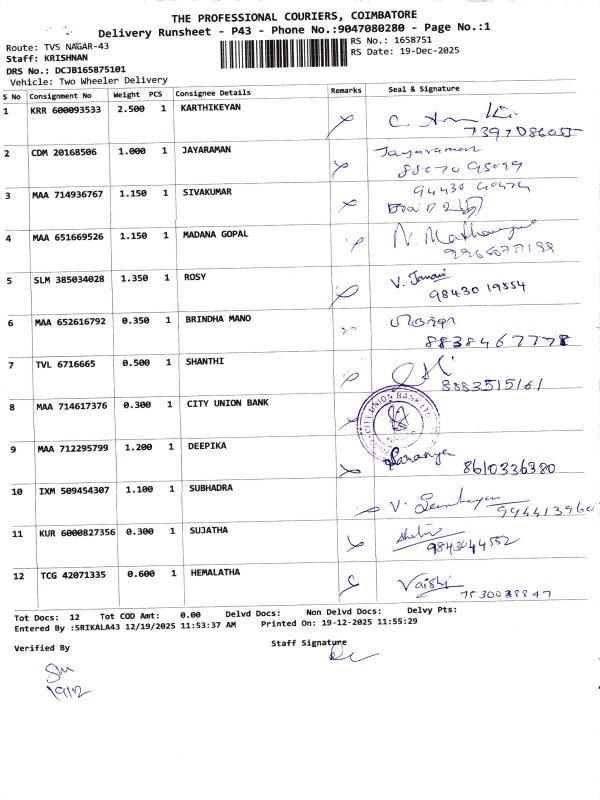 THE PROFESSIONAL COURIERS, COIMBATORE
Delivery Runsheet - P43 - Phone No.:9047080280 - Page No.:1
Route: TVS NAGAR-43 RS No.: 1658751
Staff: KRISHNAN RS Date: 19-Dec-2025
DRS No.: DCJB165875101
Vehicle: Two Wheeler Delivery
S No Consignment No Weight PCS Consignee Details Remarks Seal & Signature
1 KRR 600093533 2.500 1 KARTHIKEYAN
2 CDM 20168506 1.000 1 JAYARAMAN Jayaraman
3 MAA 714936767 1.150 1 SIVAKUMAR
4 MAA 651669526 1.150 1 MADANA GOPAL
5 SLM 385034028 1.350 1 ROSY V. Janani
98430 19554
6 MAA 652616792 0.350 1 BRINDHA MANO
8838467778
7 TVL 6716665 0.500 1 SHANTHI
8883515161
8 MAA 714617376 0.300 1 CITY UNION BANK CITY UNION BANK LTD
9 MAA 712295799 1.200 1 DEEPIKA Saranya
8610336380
10 IXM 509454307 1.100 1 SUBHADRA
9944413960
11 KUR 6000827356 0.300 1 SUJATHA
9843044552
12 TCG 42071335 0.600 1 HEMALATHA Vaishi
7530038847
Tot Docs: 12 Tot COD Amt: 0.00 Delvd Docs: Non Delvd Docs: Delvy Pts:
Entered By :SRIKALA43 12/19/2025 11:53:37 AM Printed On: 19-12-2025 11:55:29
Verified By Staff Signature
19/12